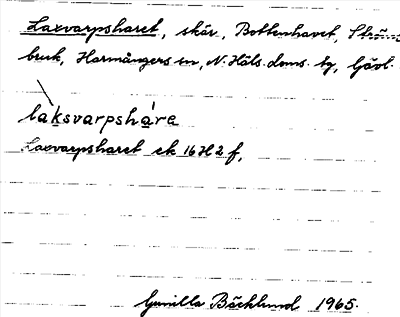 Laxvarpsharet, skär, Bottenhavet, Ströms-
bruk, Harmångers sn, N. Häls. doms. tg, Gävl.
làksvarpsháre
Laxvarpsharet ek 16H2f,
Gunilla Bäcklund 1965.